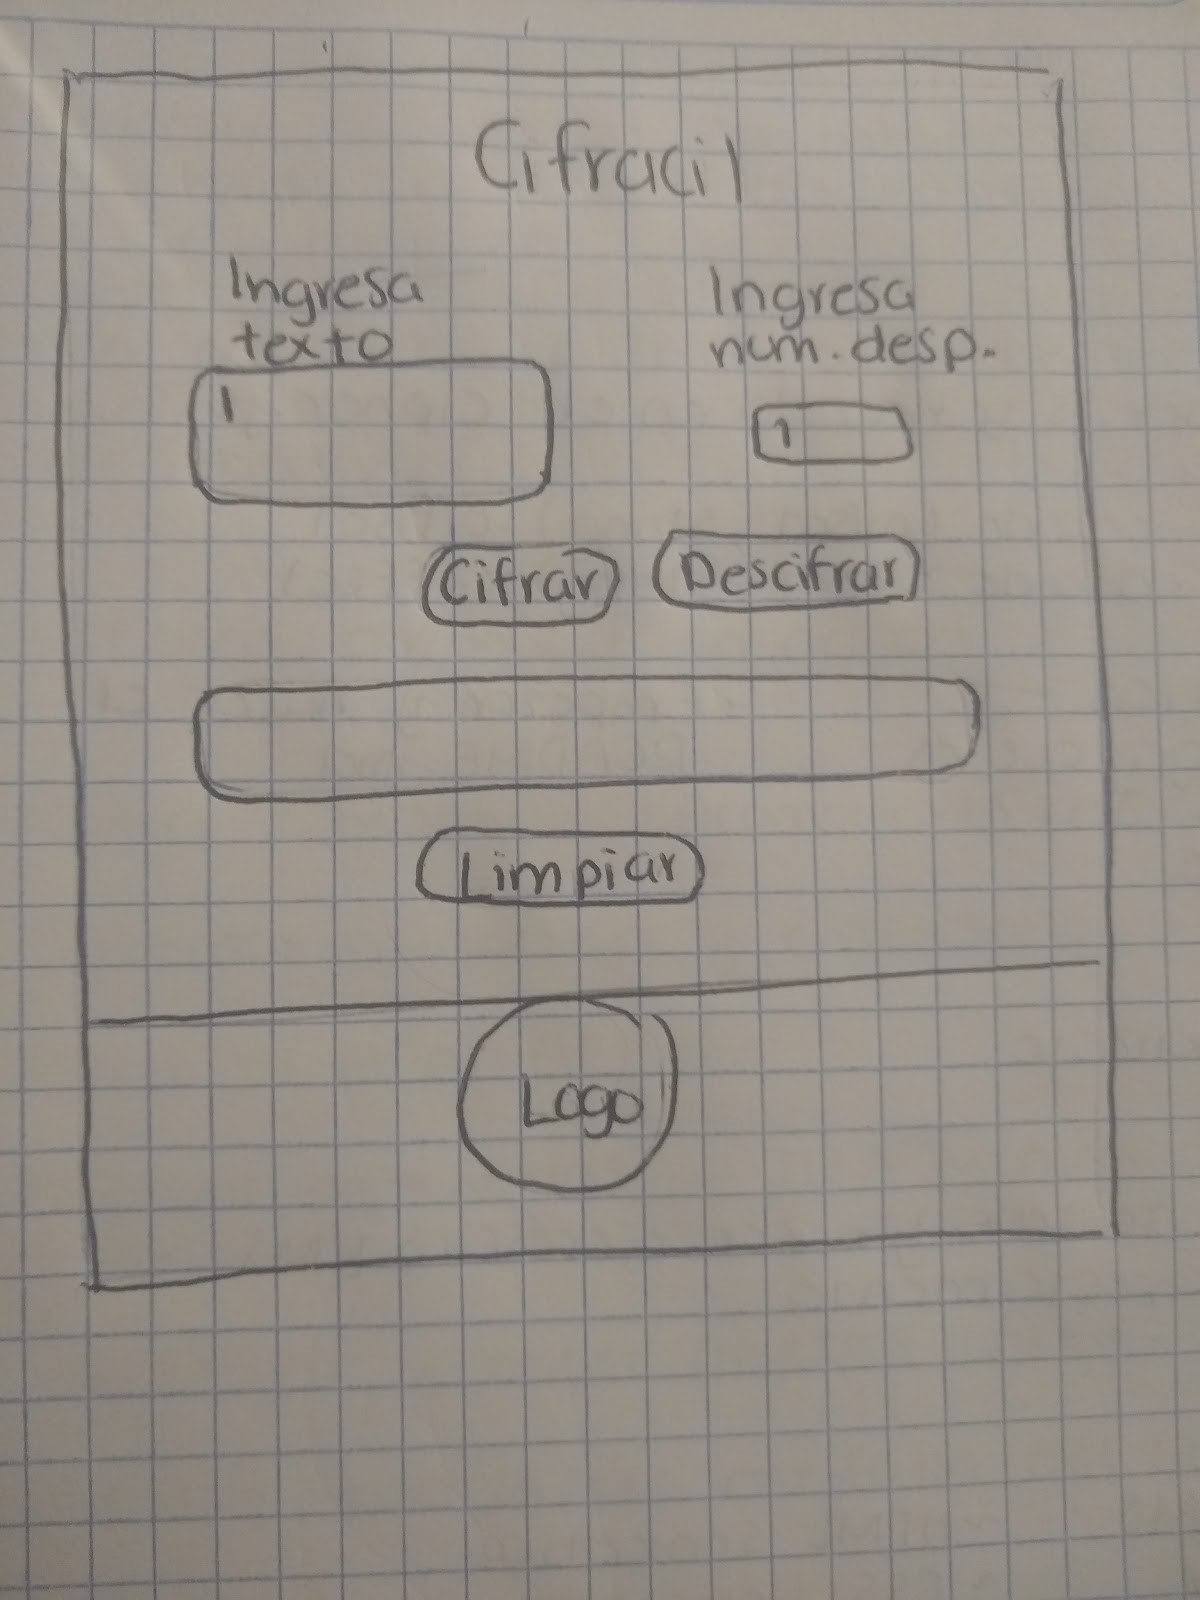 Cifracil
Ingresa
texto
Ingresa
num. desp.
Cifrar
Descifrar
Limpiar
Logo